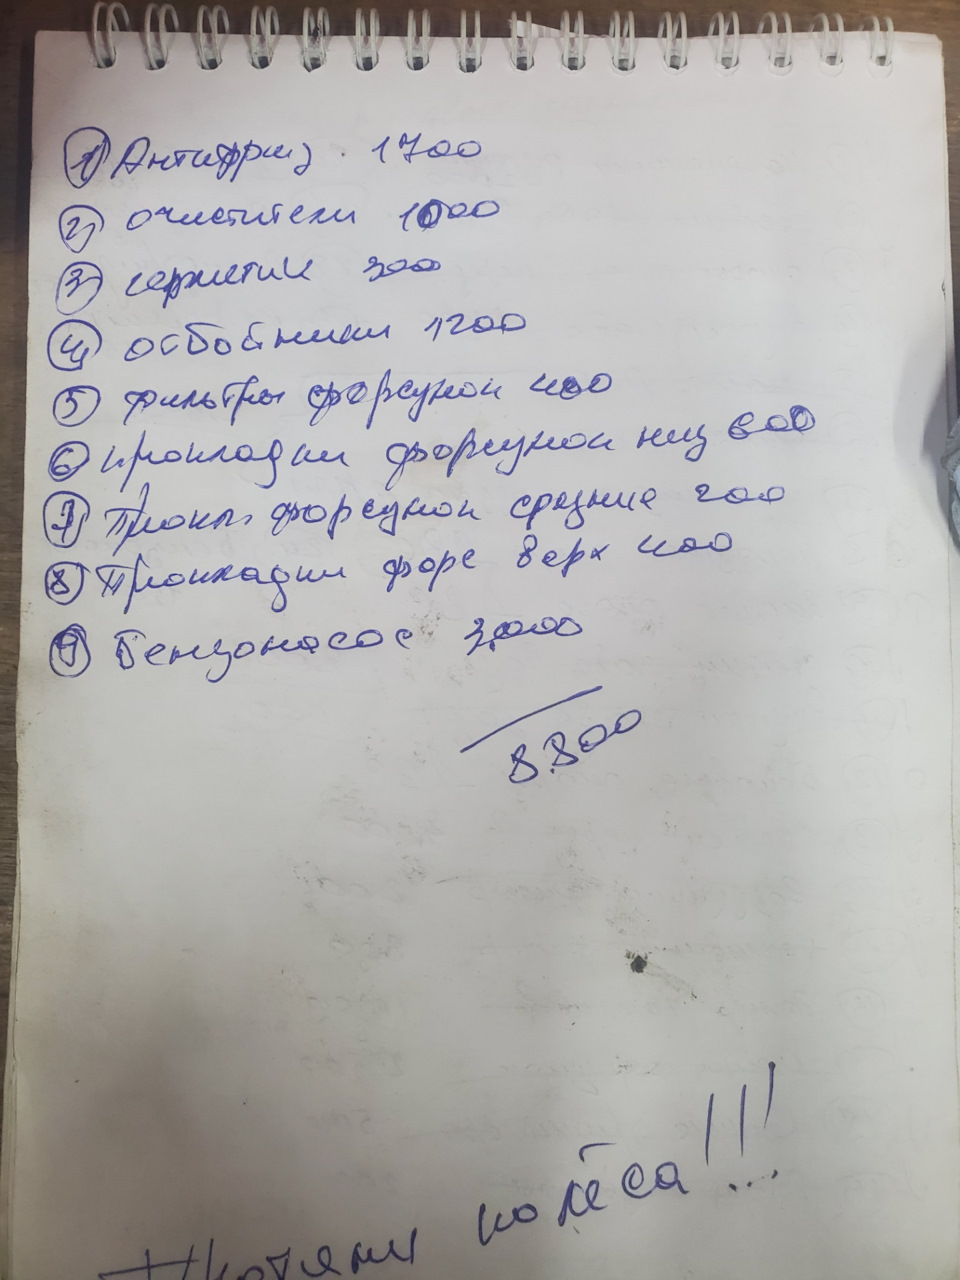 1) Антифриз 1700
2) очистители 1000
3) герметик 300
4) отбойники 1200
5) фильтры форсунок 400
6) прокладки форсунок низ 600
7) Прокл. форсунок средние 200
8) Прокладки форс верх 400
9) Бензонасос 3000
8.800
Протяни колёса!!!